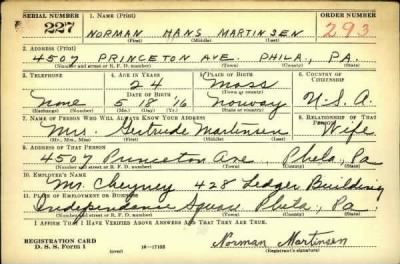 SERIAL NUMBER 1. NAME (Print) ORDER NUMBER
227 NORMAN HANS MARTINSEN 293
(First) (Middle) (Last)
2. ADDRESS (Print)
4507 PRINCETON AVE. PHILA., PA.
(Number and street or R. F. D. number) (Town) (County) (State)
3. TELEPHONE 4. AGE IN YEARS 5. PLACE OF BIRTH 6. COUNTRY OF CITIZENSHIP
24 Moss
DATE OF BIRTH (Town or county)
None 5 18 '16 Norway U.S.A.
(Exchange) (Number) (Mo.) (Day) (Yr.) (State or country)
7. NAME OF PERSON WHO WILL ALWAYS KNOW YOUR ADDRESS 8. RELATIONSHIP OF THAT PERSON
Mrs. Gertrude Martinsen Wife
(Mr., Mrs., Miss) (First) (Middle) (Last)
9. ADDRESS OF THAT PERSON
4507 Princeton Ave, Phila, Pa
(Number and street or R. F. D. number) (Town) (County) (State)
10. EMPLOYER'S NAME
Mr. Cheyney 428 Ledger Building
11. PLACE OF EMPLOYMENT OR BUSINESS
Independence Square Phila, Pa.
(Number and street or R. F. D. number) (Town) (County) (State)
I AFFIRM THAT I HAVE VERIFIED ABOVE ANSWERS AND THAT THEY ARE TRUE.
REGISTRATION CARD
D. S. S. Form 1 (over) 16-17105 Norman Martinsen
(Registrant's signature)